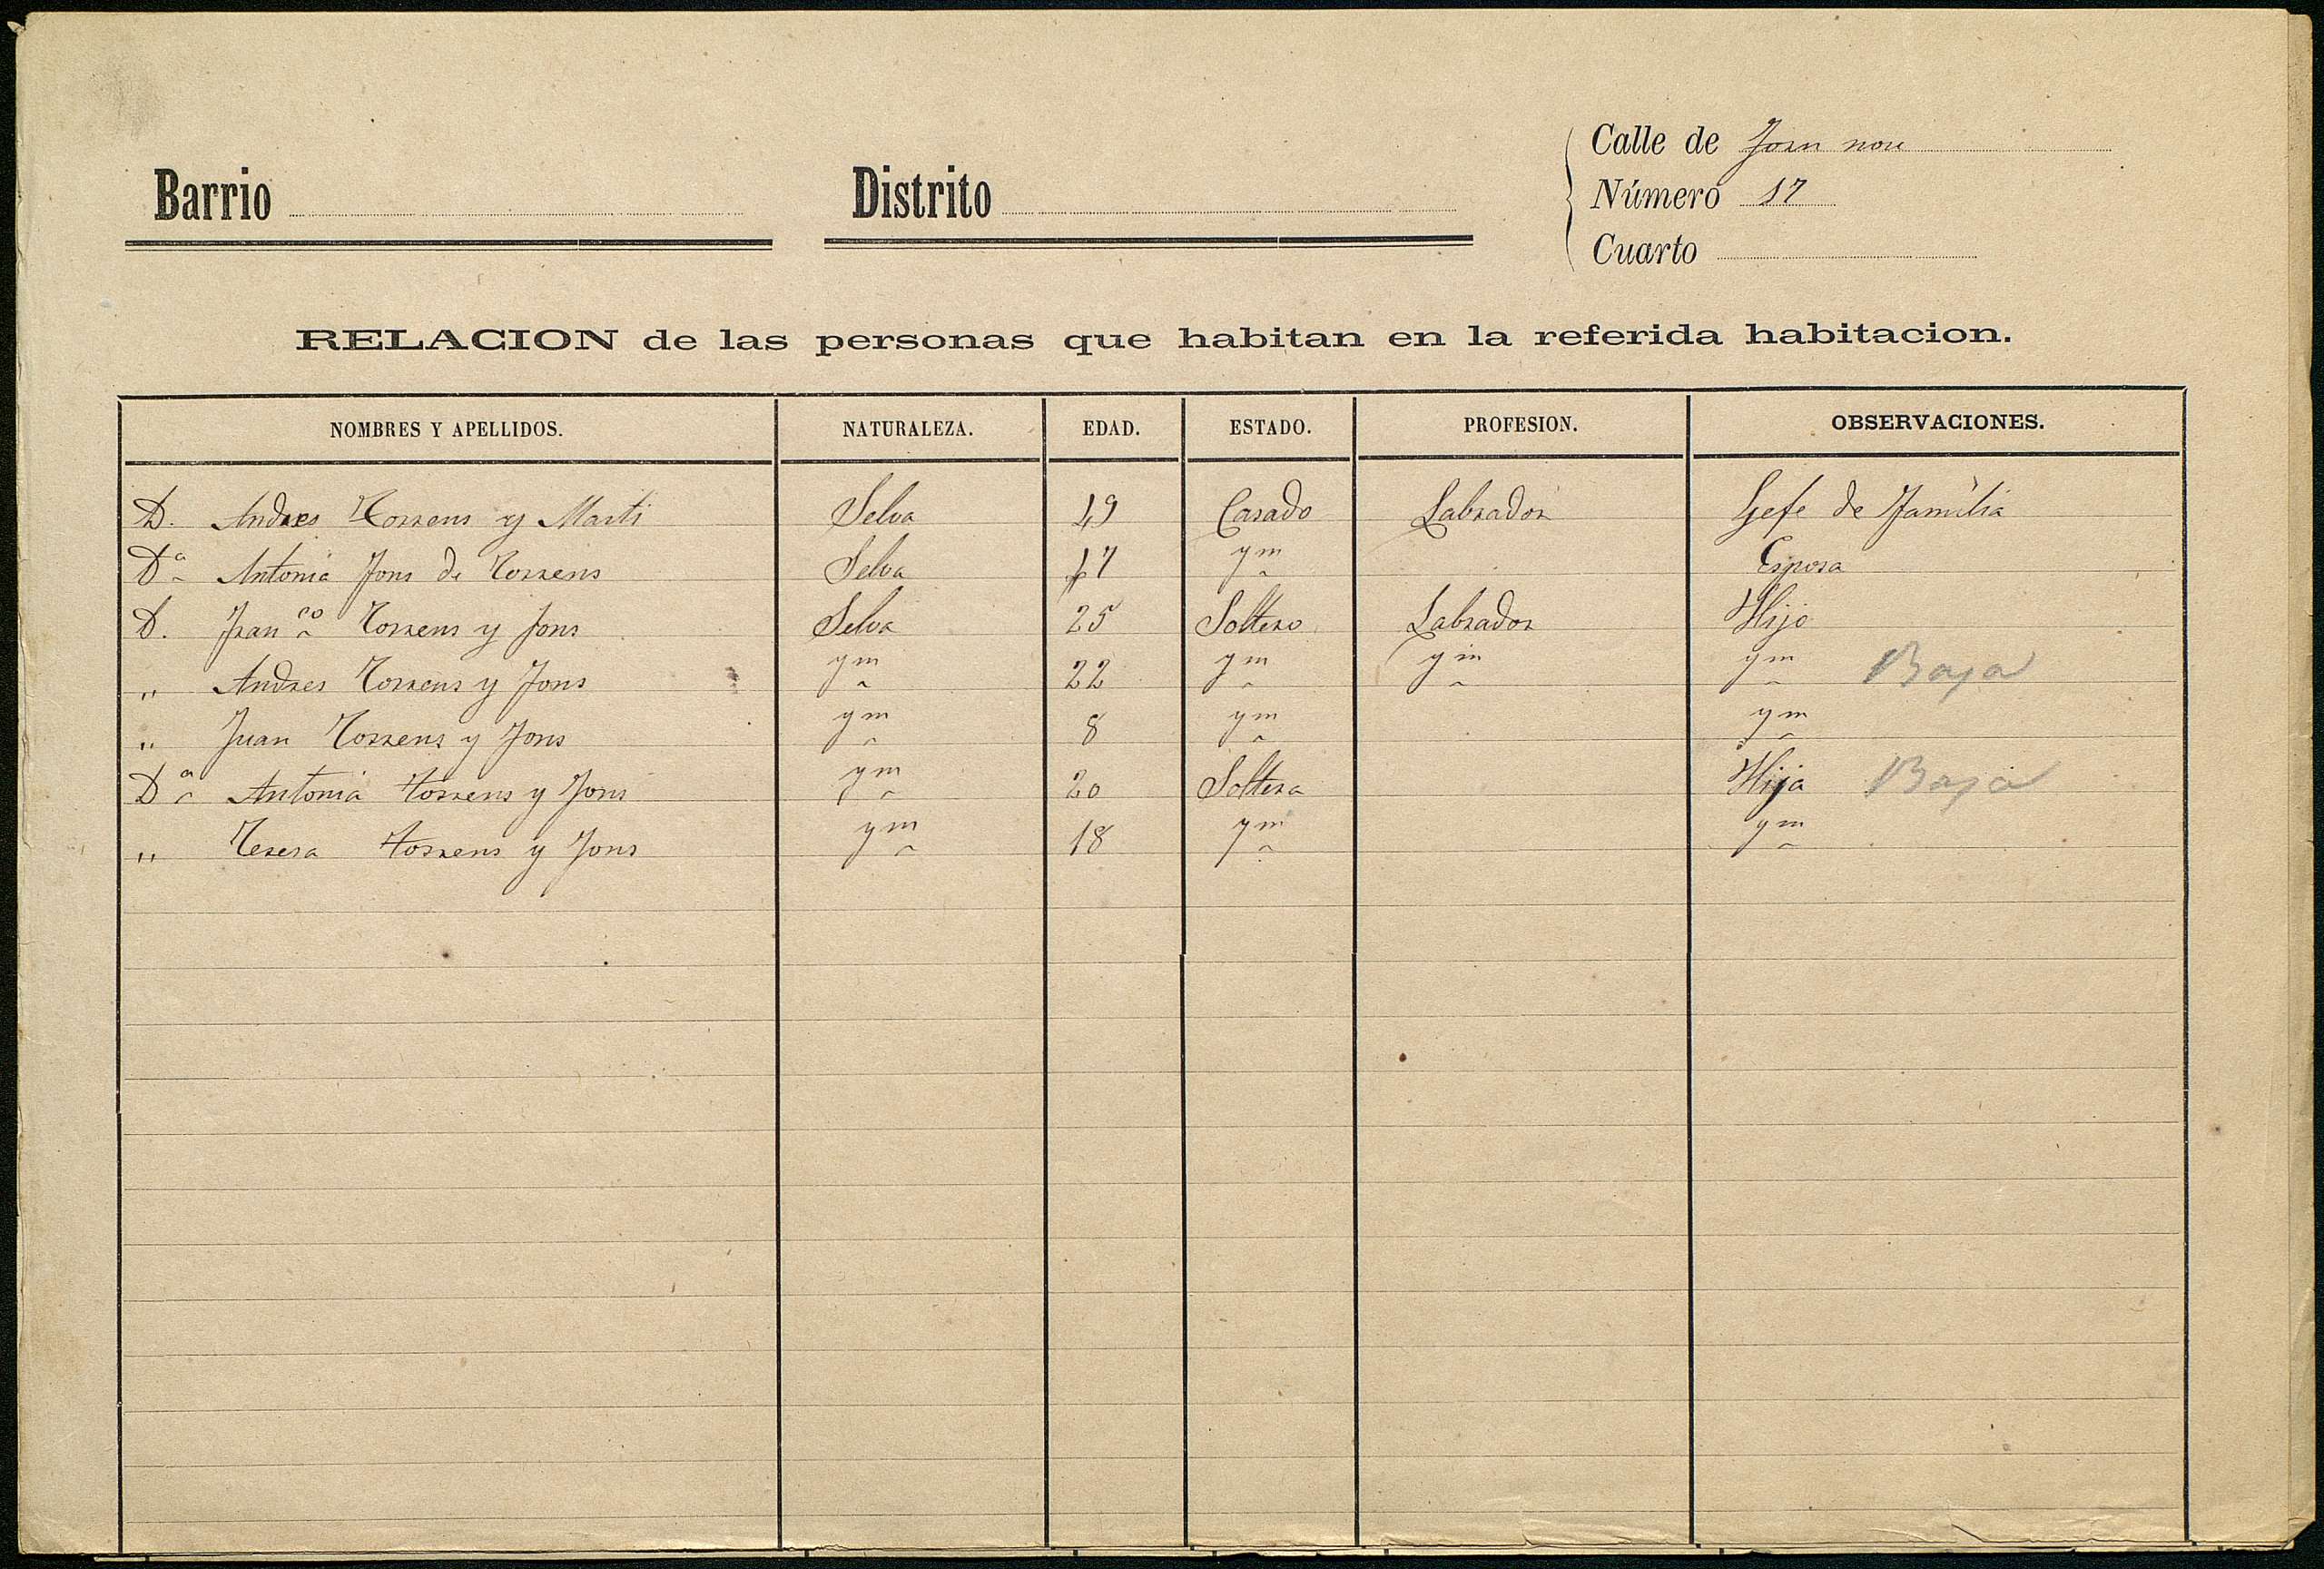 Calle de Forn nou
Barrio Distrito Número 17
Cuarto
RELACION de las personas que habitan en la referida habitacion.
NOMBRES Y APELLIDOS. NATURALEZA. EDAD. ESTADO. PROFESION. OBSERVACIONES.
D. Andres Torrens y Marti Selva 49 Casado Labrador Gefe de Familia
Dª Antonia Fons de Torrens Selva 47 ym Esposa
D. Franco Torrens y Fons Selva 25 Soltero Labrador Hijo
" Andres Torrens y Fons ym 22 ym ym ym Baja
" Juan Torrens y Fons ym 8 ym ym
Dª Antonia Torrens y Fons ym 20 Soltera Hija Baja
" Teresa Torrens y Fons ym 18 ym ym